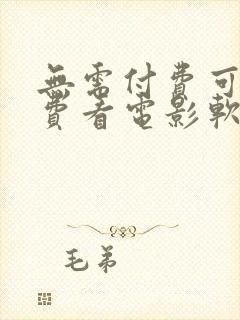 無需付費可
費看電影軟
毛弟